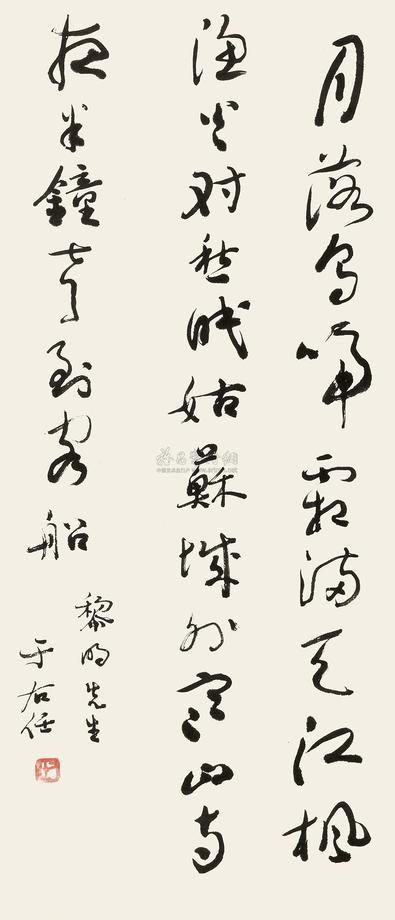 月落烏啼霜滿天江楓
漁火对愁眠姑蘇城外寒山寺
夜半鐘聲到客船
黎明先生
于右任